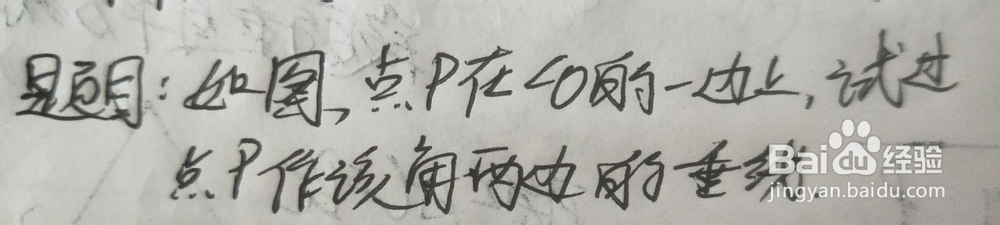 题目:如图,点P在∠O的一边上,试过
点P作该角两边的垂线.
Baidu经验
jingyan.baidu.com